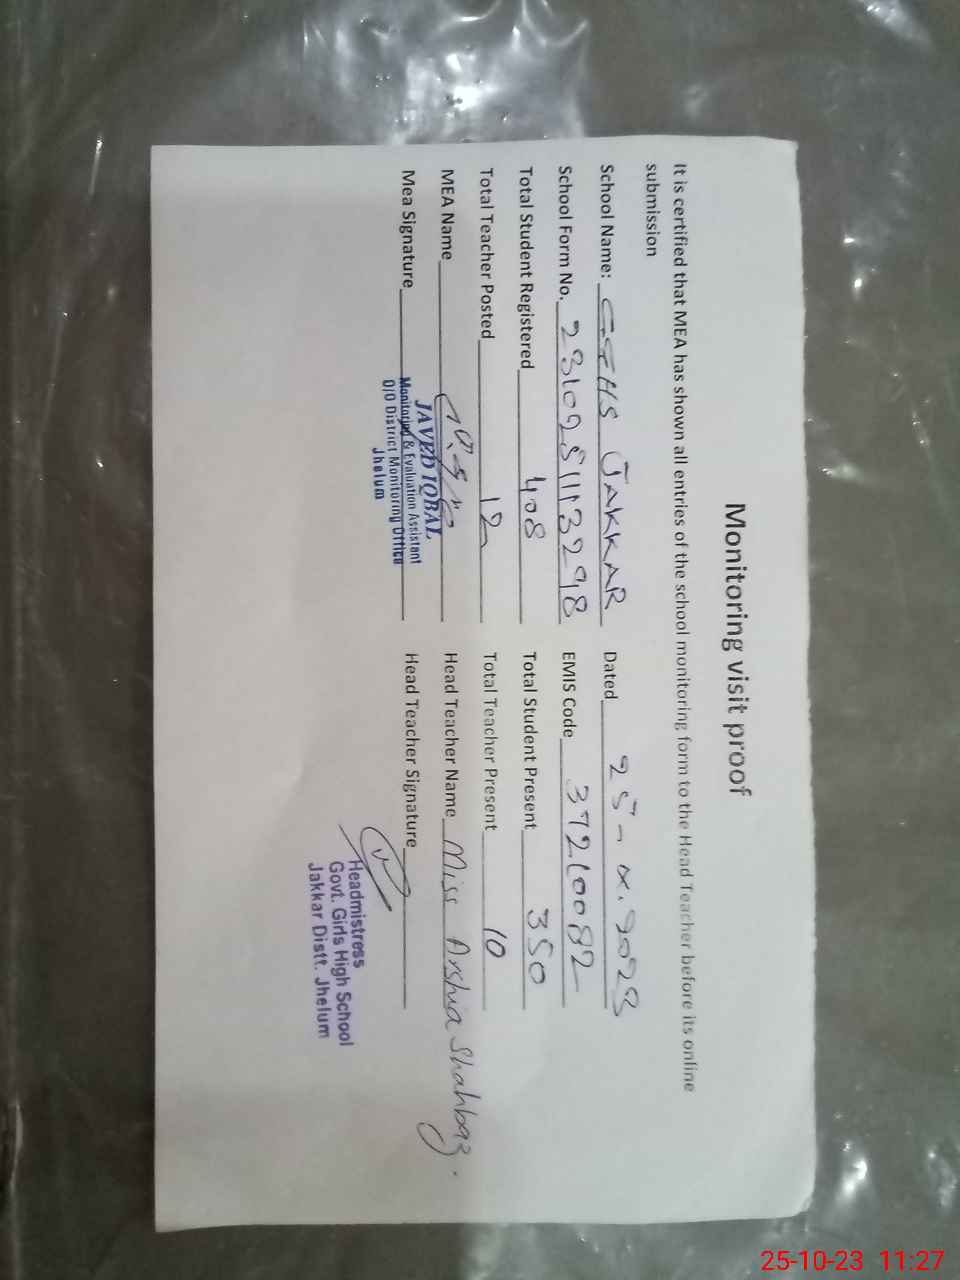 Monitoring visit proof
It is certified that MEA has shown all entries of the school monitoring form to the Head Teacher before its online
submission
School Name: GGHS JAKKAR Dated 25-10-2023
School Form No. 23109251113298 EMIS Code 37210082
Total Student Registered 408 Total Student Present 350
Total Teacher Posted 12 Total Teacher Present 10
MEA Name Head Teacher Name Miss Arshia Shahbaz.
Mea Signature Head Teacher Signature
JAVED IQBAL
Monitoring & Evaluation Assistant
O/O District Monitoring Office
Jhelum
Headmistress
Govt. Girls High School
Jakkar Distt. Jhelum
25-10-23 11:27